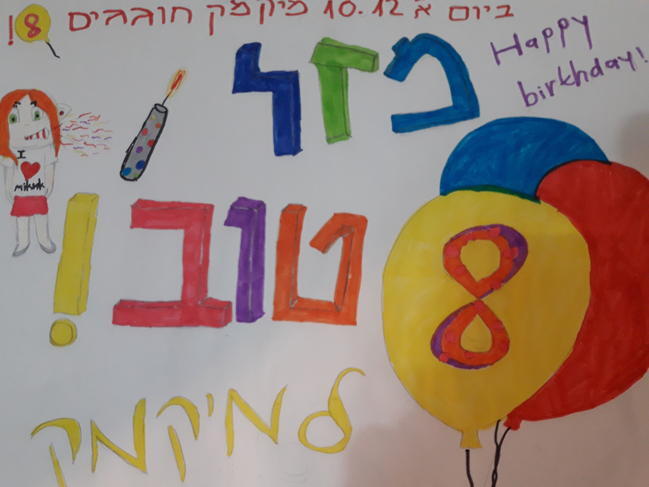 ביום א' 10.12 מיקמק חוגגים 8!
Happy
birkhday!
מזל
I
mikmak
טוב!
8
למיקמק